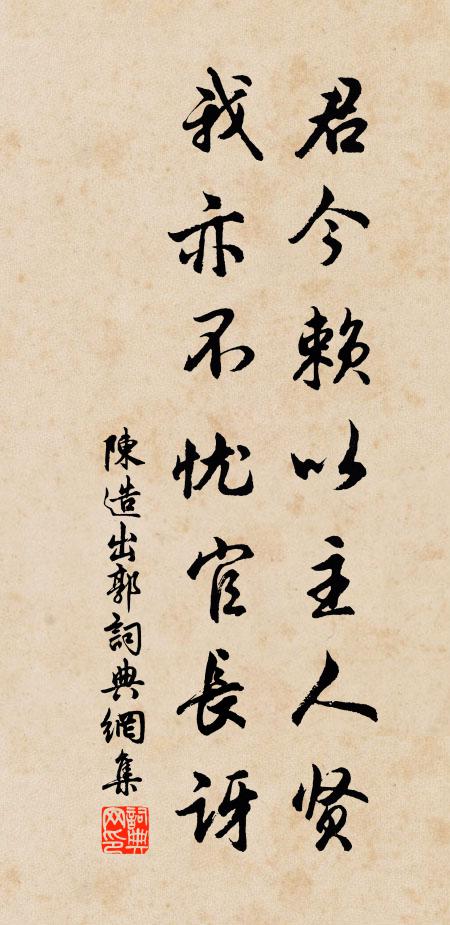 君今赖以主人贤
我亦不忧官长讶
陳造出郭詞典網集
詞典网印